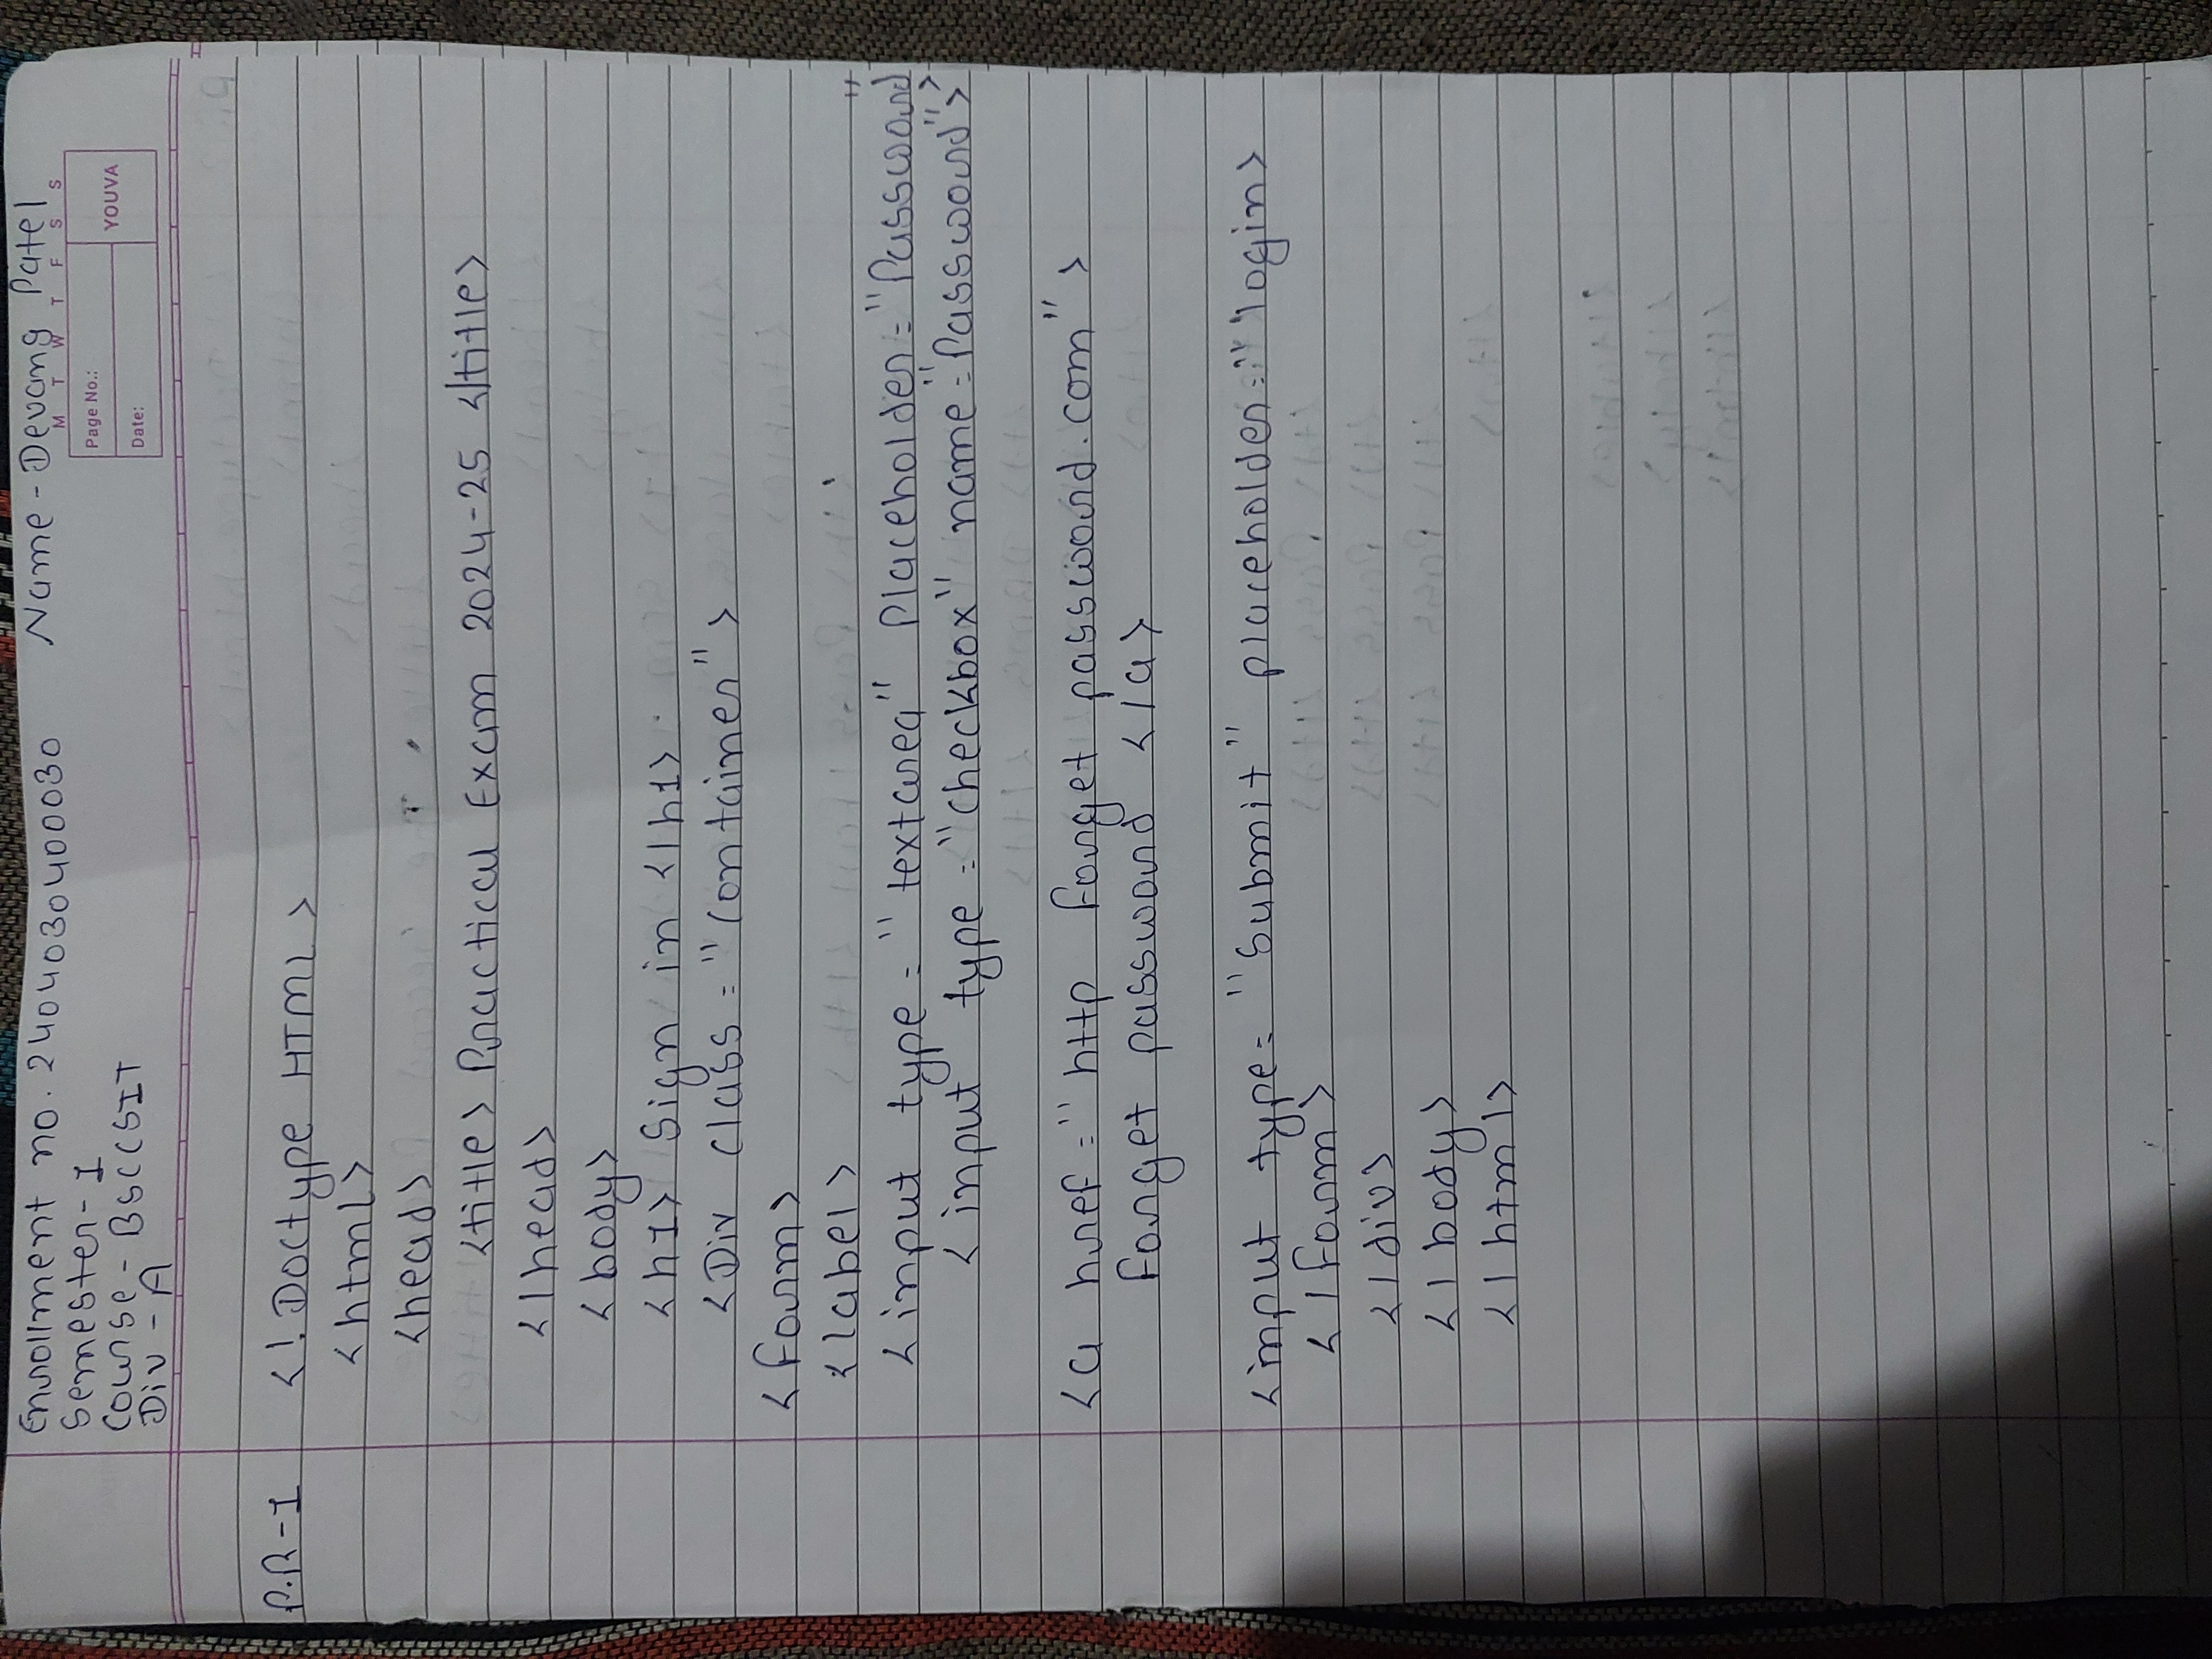 Enrollment no. 2404030400030 Name - Devang Patel
M T W T F S S
Semester - I
Page No.:
YOUVA
Course - BSCCSIT
Date:
Div - A
P.R-1 <! Doctype HTML>
<html>
<head>
<title> Practical Exam 2024-25 </title>
</head>
<body>
<h1> Sign in </h1>
<Div class = "container">
<form>
<label>
<input type = "textarea" Placeholder = "Password">
<input type = "checkbox" name = "Password">
<a href = "http forget password.com">
forget password </a>
<input type = "Submit" placeholder = "" login>
</form>
</div>
</body>
</html>